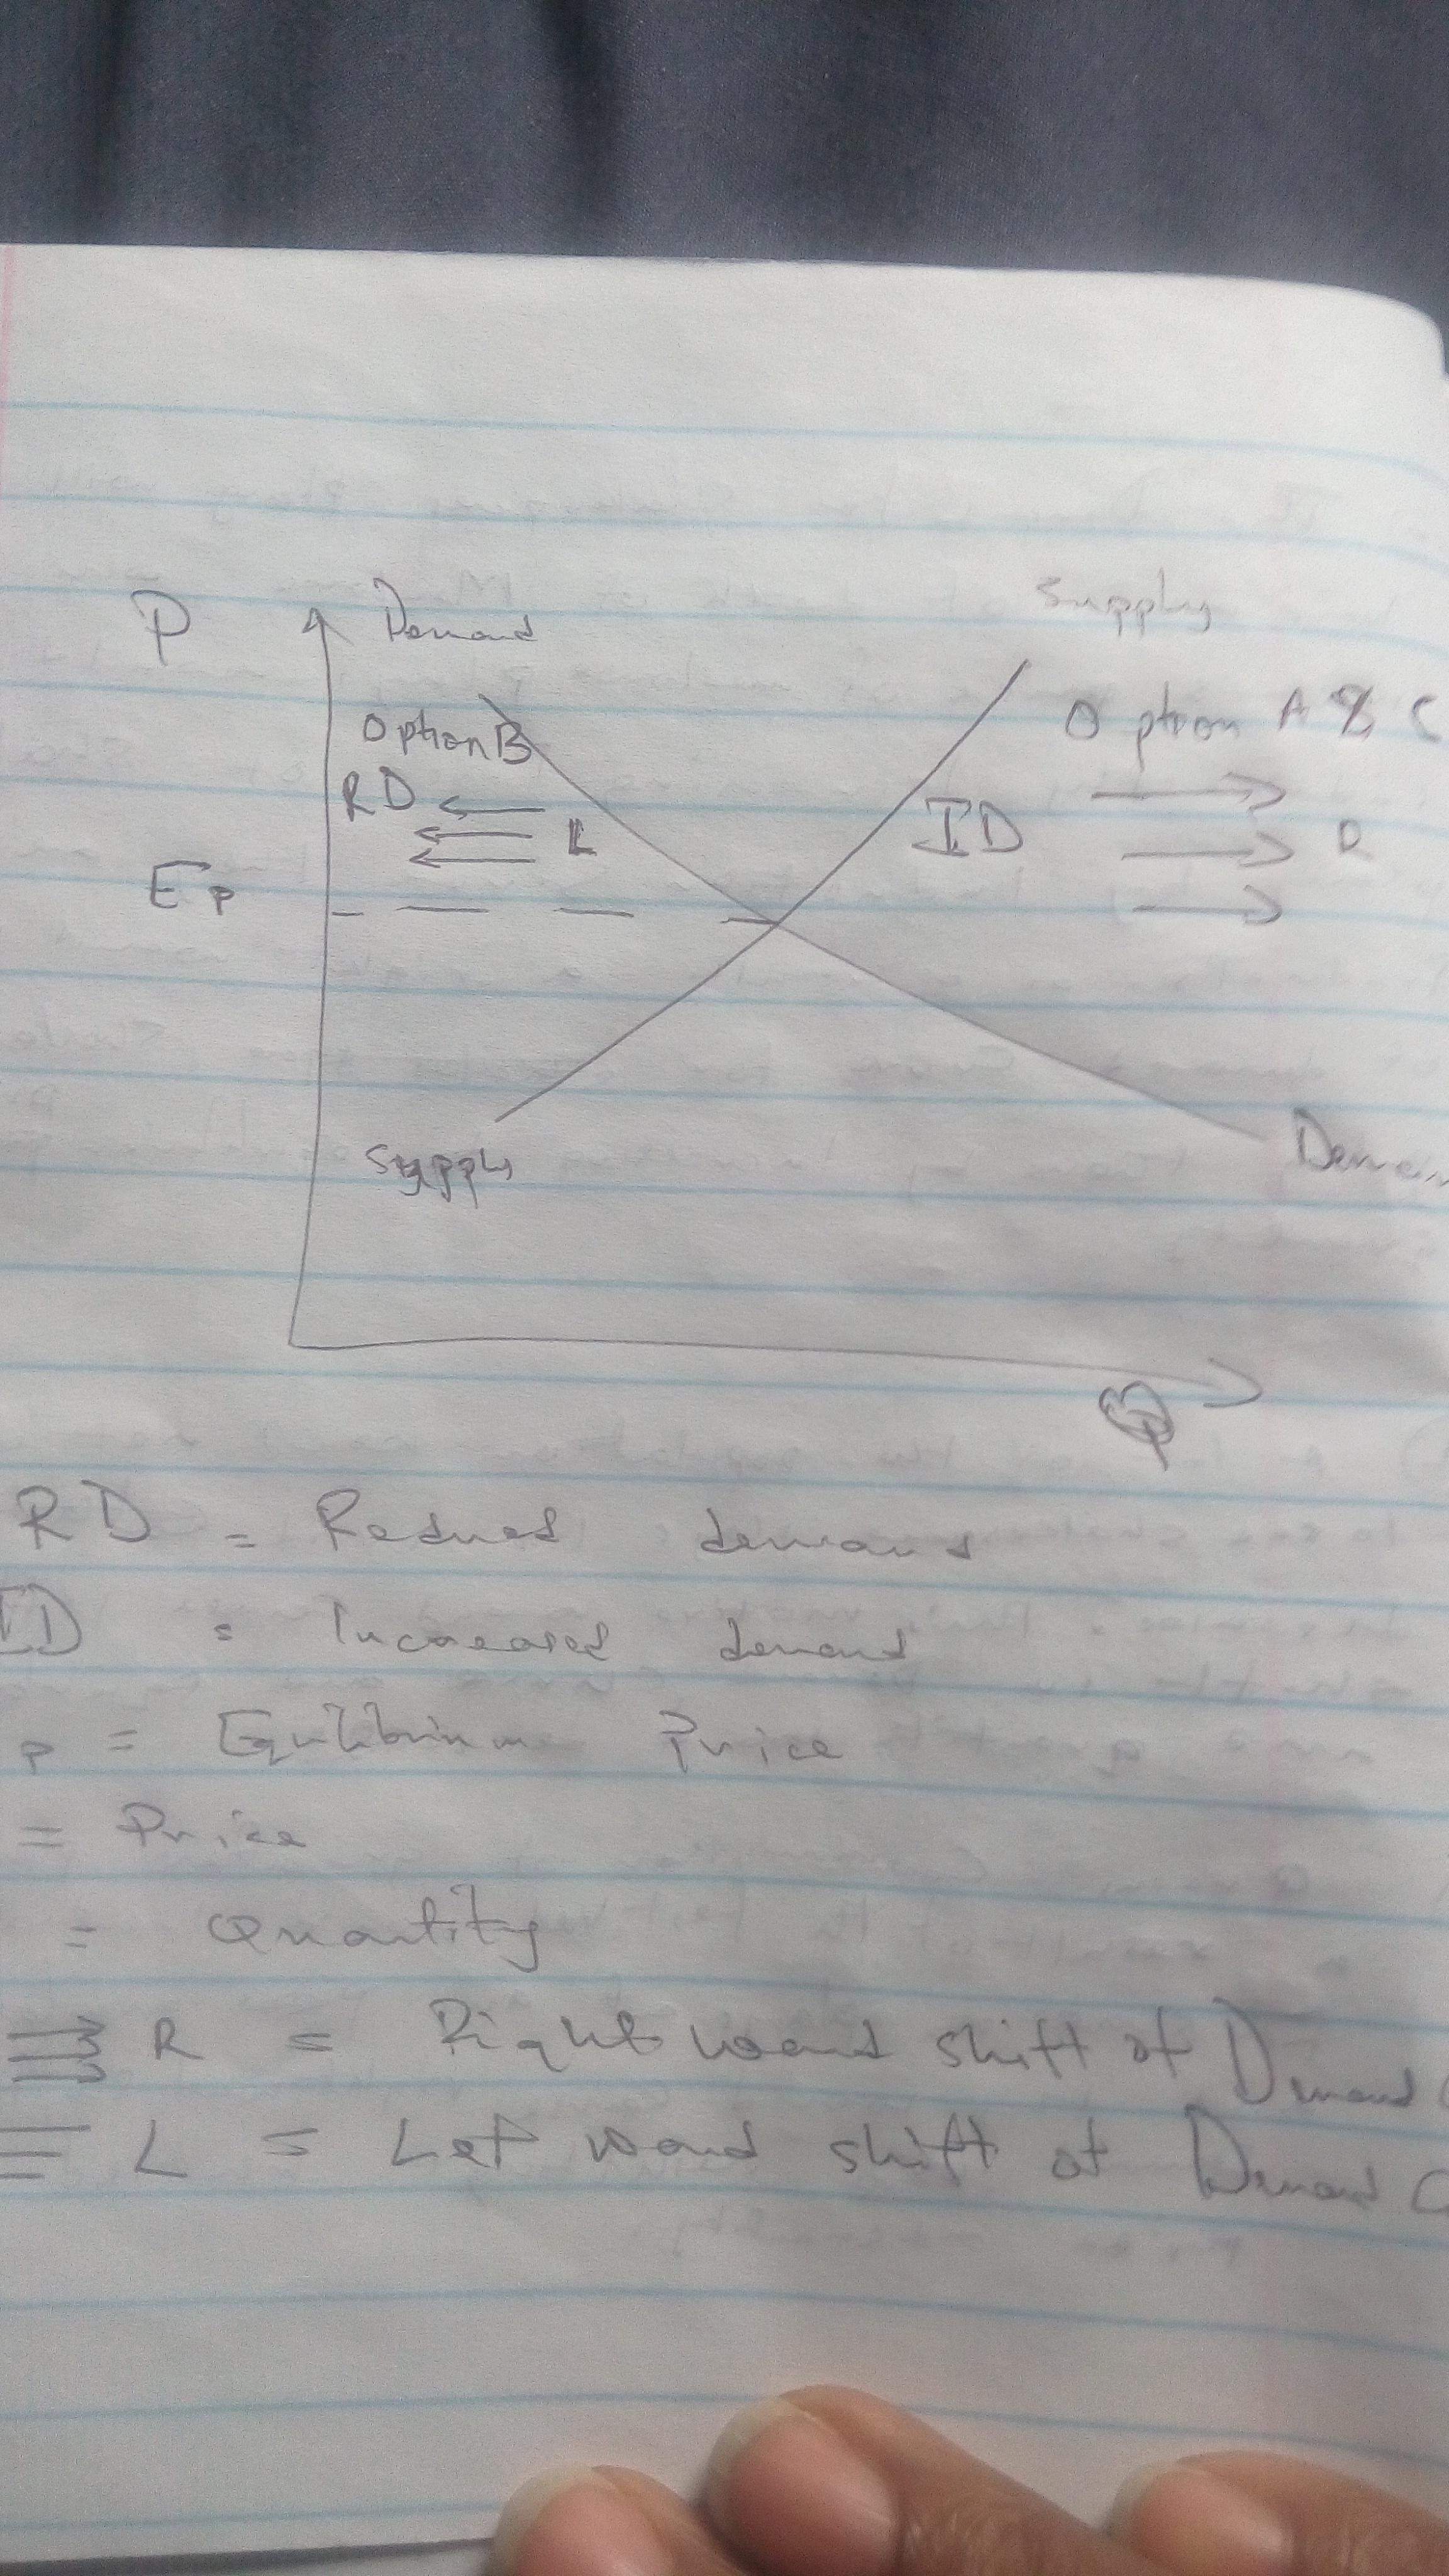 Supply
P Demand
Option B Option A & C
RD L ID R
Ep
Supply
Q
RD = Reduced demand
ID = Increased demand
P = Equilibrium Price
= Price
= Quantity
R = Right ward shift of Demand C
L = Left ward shift of Demand C